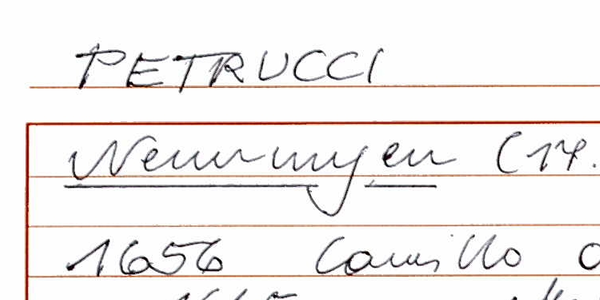 PETRUCCI
Nennungen (17.
1656 Camillo